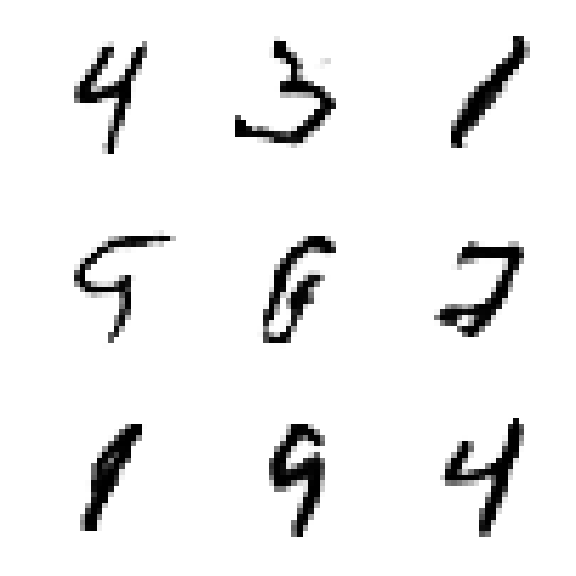 4 3 1
9 6 2
1 9 4